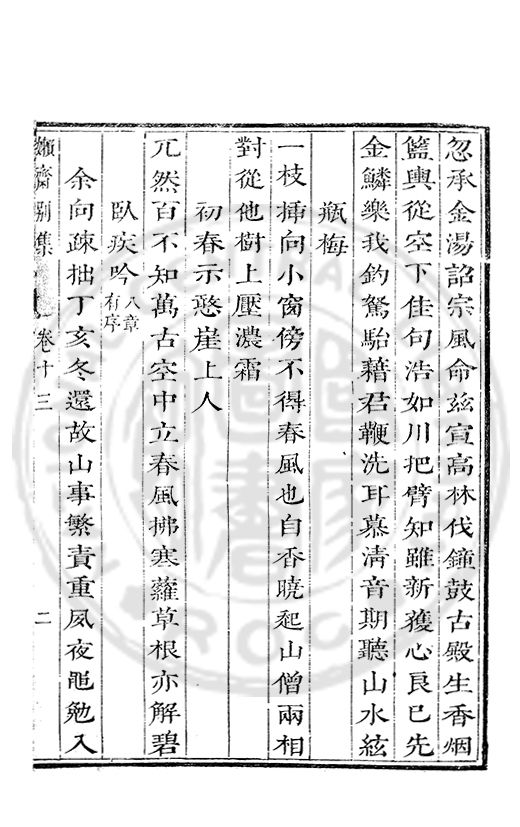 忽承金湯詔宗風命茲宣高林伐鐘鼓古殿生香烟
籃輿從空下佳句浩如川把臂知雖新獲心良已先
金鱗樂我釣駑駘藉君鞭洗耳慕清音期聽山水絃
瓶梅
一枝揷向小窗傍不得春風也自香曉起山僧兩相
對從他樹上壓濃霜
初春示憨崖上人
兀然百不知萬古空中立春風拂寒蘿草根亦解碧
臥疾吟八章有序
余向疎拙丁亥冬還故山事繁責重夙夜黽勉入
嬾齋別集 卷十三 二